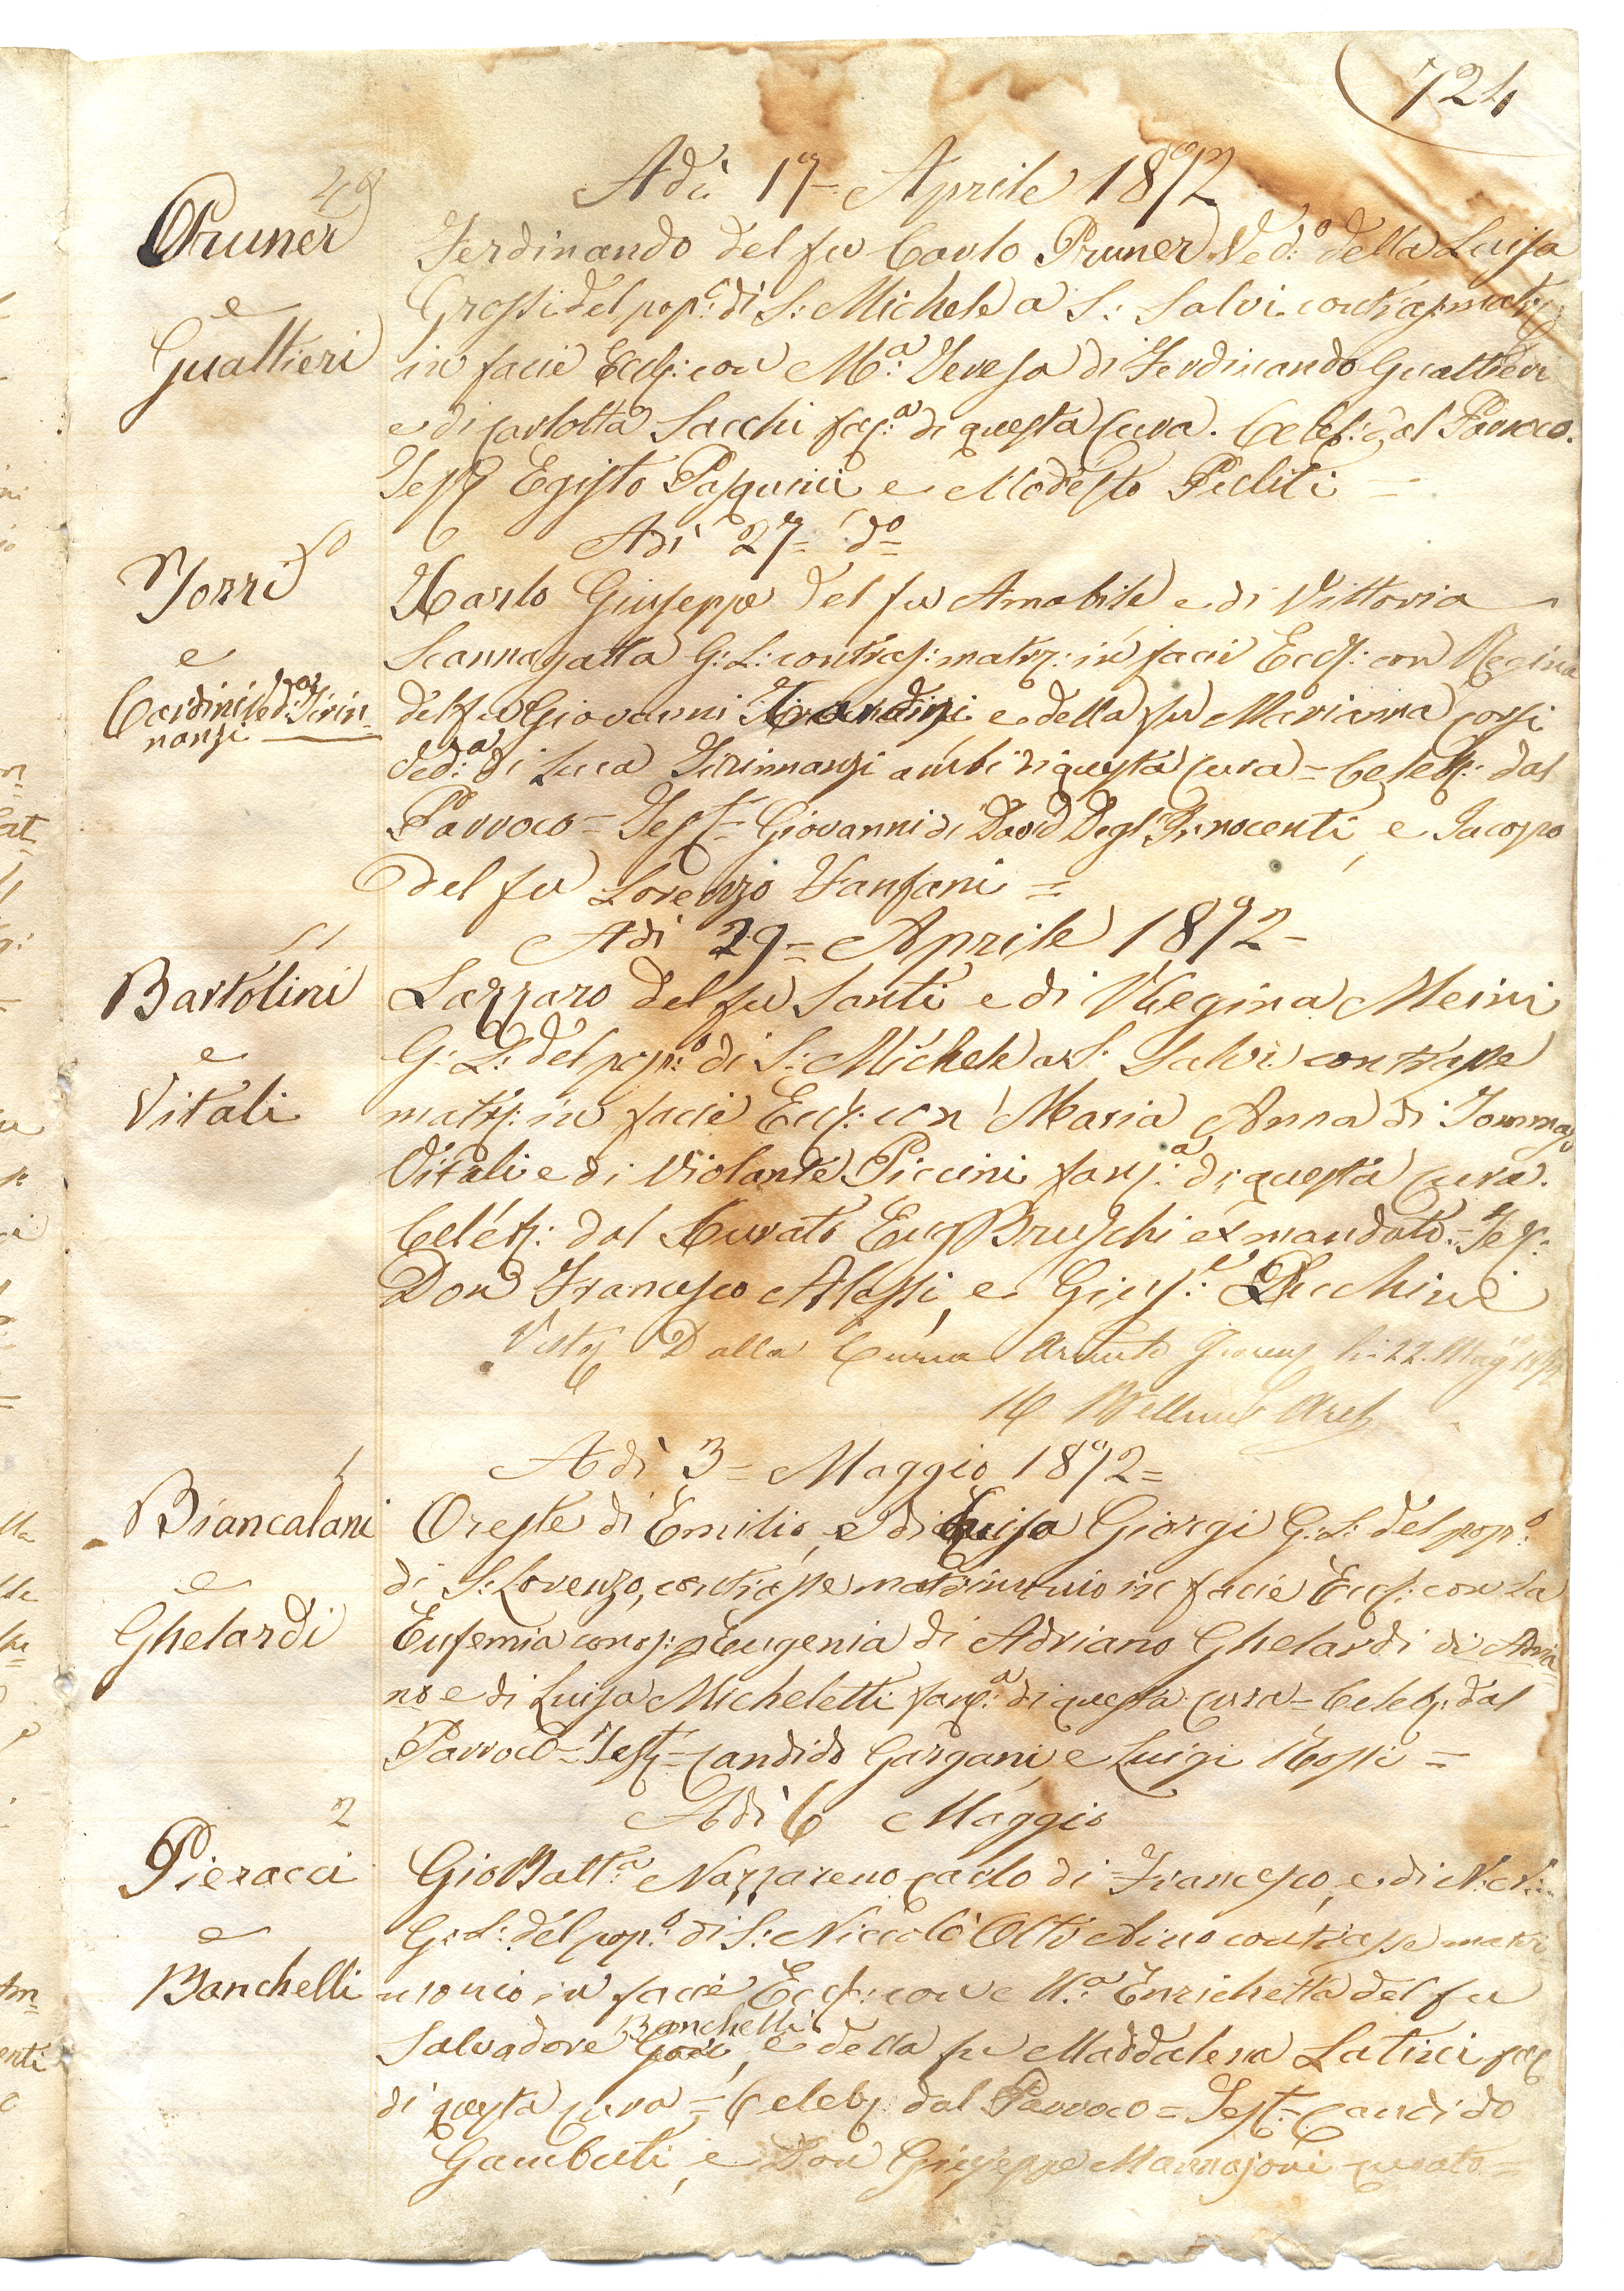 724
Adì 17 = Aprile 1872
49
Pruner
e
Gualtieri
Ferdinando del fu Carlo Pruner Ved:o della Luisa
Grossi del pop:o di S: Michele a S: Salvi contras: matrz:
in facie Eccl: con M:a Teresa di Ferdinando Gualtieri
e di Carlotta Sacchi fac:a di questa Cura. Celeb: dal Parroco.
Test Egisto Pasquini e Modesto Peditì =
Adì 27 = do
50
Torri
e
Cardini Ved:a Tirin=
nanzi
Carlo Giuseppe del fu Amabile e di Vittoria
Scannagatta G: L: contras: matrz: in facie Eccl: con Regina
del fu Giovanni Cardini e della fu Marianna Corsi
Ved:a di Luca Tirinnanzi ambi di questa Cura = Celeb: dal
Parroco = Test = Giovanni di David Degl'Innocenti, e Jacopo
del fu Lorenzo Fanfani =
Adì 29 = Aprile 1872 =
51
Bartolini
e
Vitali
Lazzaro del fu Santi e di Regina Meini
G: L: del pop:o di S: Michele a S: Salvi contrasse
matrz: in facie Eccl: con Maria Anna di Tommaso
Vitali e di Violante Piccini fanc:a di questa Cura.
Celeb: dal Curato Eug Bruschi ex mandato = Tes:
Don Francesco Alessi, e Gius:e Lucchini
Visto Dalla Curia li: 22. Mag 1872
Adì 3 = Maggio 1872 =
1
Biancalani
e
Ghelardi
Oreste di Emilio, e di Luisa Giorgi G: L: del pop:o
di S: Lorenzo, contrasse matrimonio in facie Eccl: con la
Eufemia conos: p Eugenia di Adriano Ghelardi di Adria
no e di Luisa Micheletti fanc:a di questa Cura = Celeb: dal
Parroco = Test = Candido Gargani, e Luigi Rossi =
Adì 6 Maggio
2
Pieracci
e
Banchelli
Gio Batt:a Nazzareno Carlo di Francesco, e di N: N:
G: L: del pop:o di S: Niccolò Oltr'Arno contrasse matri
monio in facie Eccl: con M:a Enrichetta del fu
Banchelli
Salvadore e della fu Maddalena Latini fac
di questa Cura = Celeb dal Parroco = Test = Candido
Gambuti, e Don Giuseppe Mannajoni Curato =